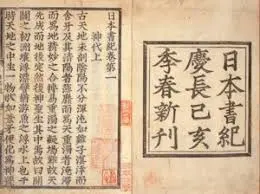 日本書紀
慶長己亥
季春新刊
日本書紀卷第一
神代上
古天地未剖陰陽不分渾沌如雞子溟涬而
含牙及其清陽者薄靡而為天重濁者淹滯
而為地精妙之合搏易重濁之凝竭難故天
先成而地後定然後神聖生其中焉故曰開
闢之初洲壤浮漂譬猶游魚之浮水上也于
時天地之中生一物狀如葦牙便化為神